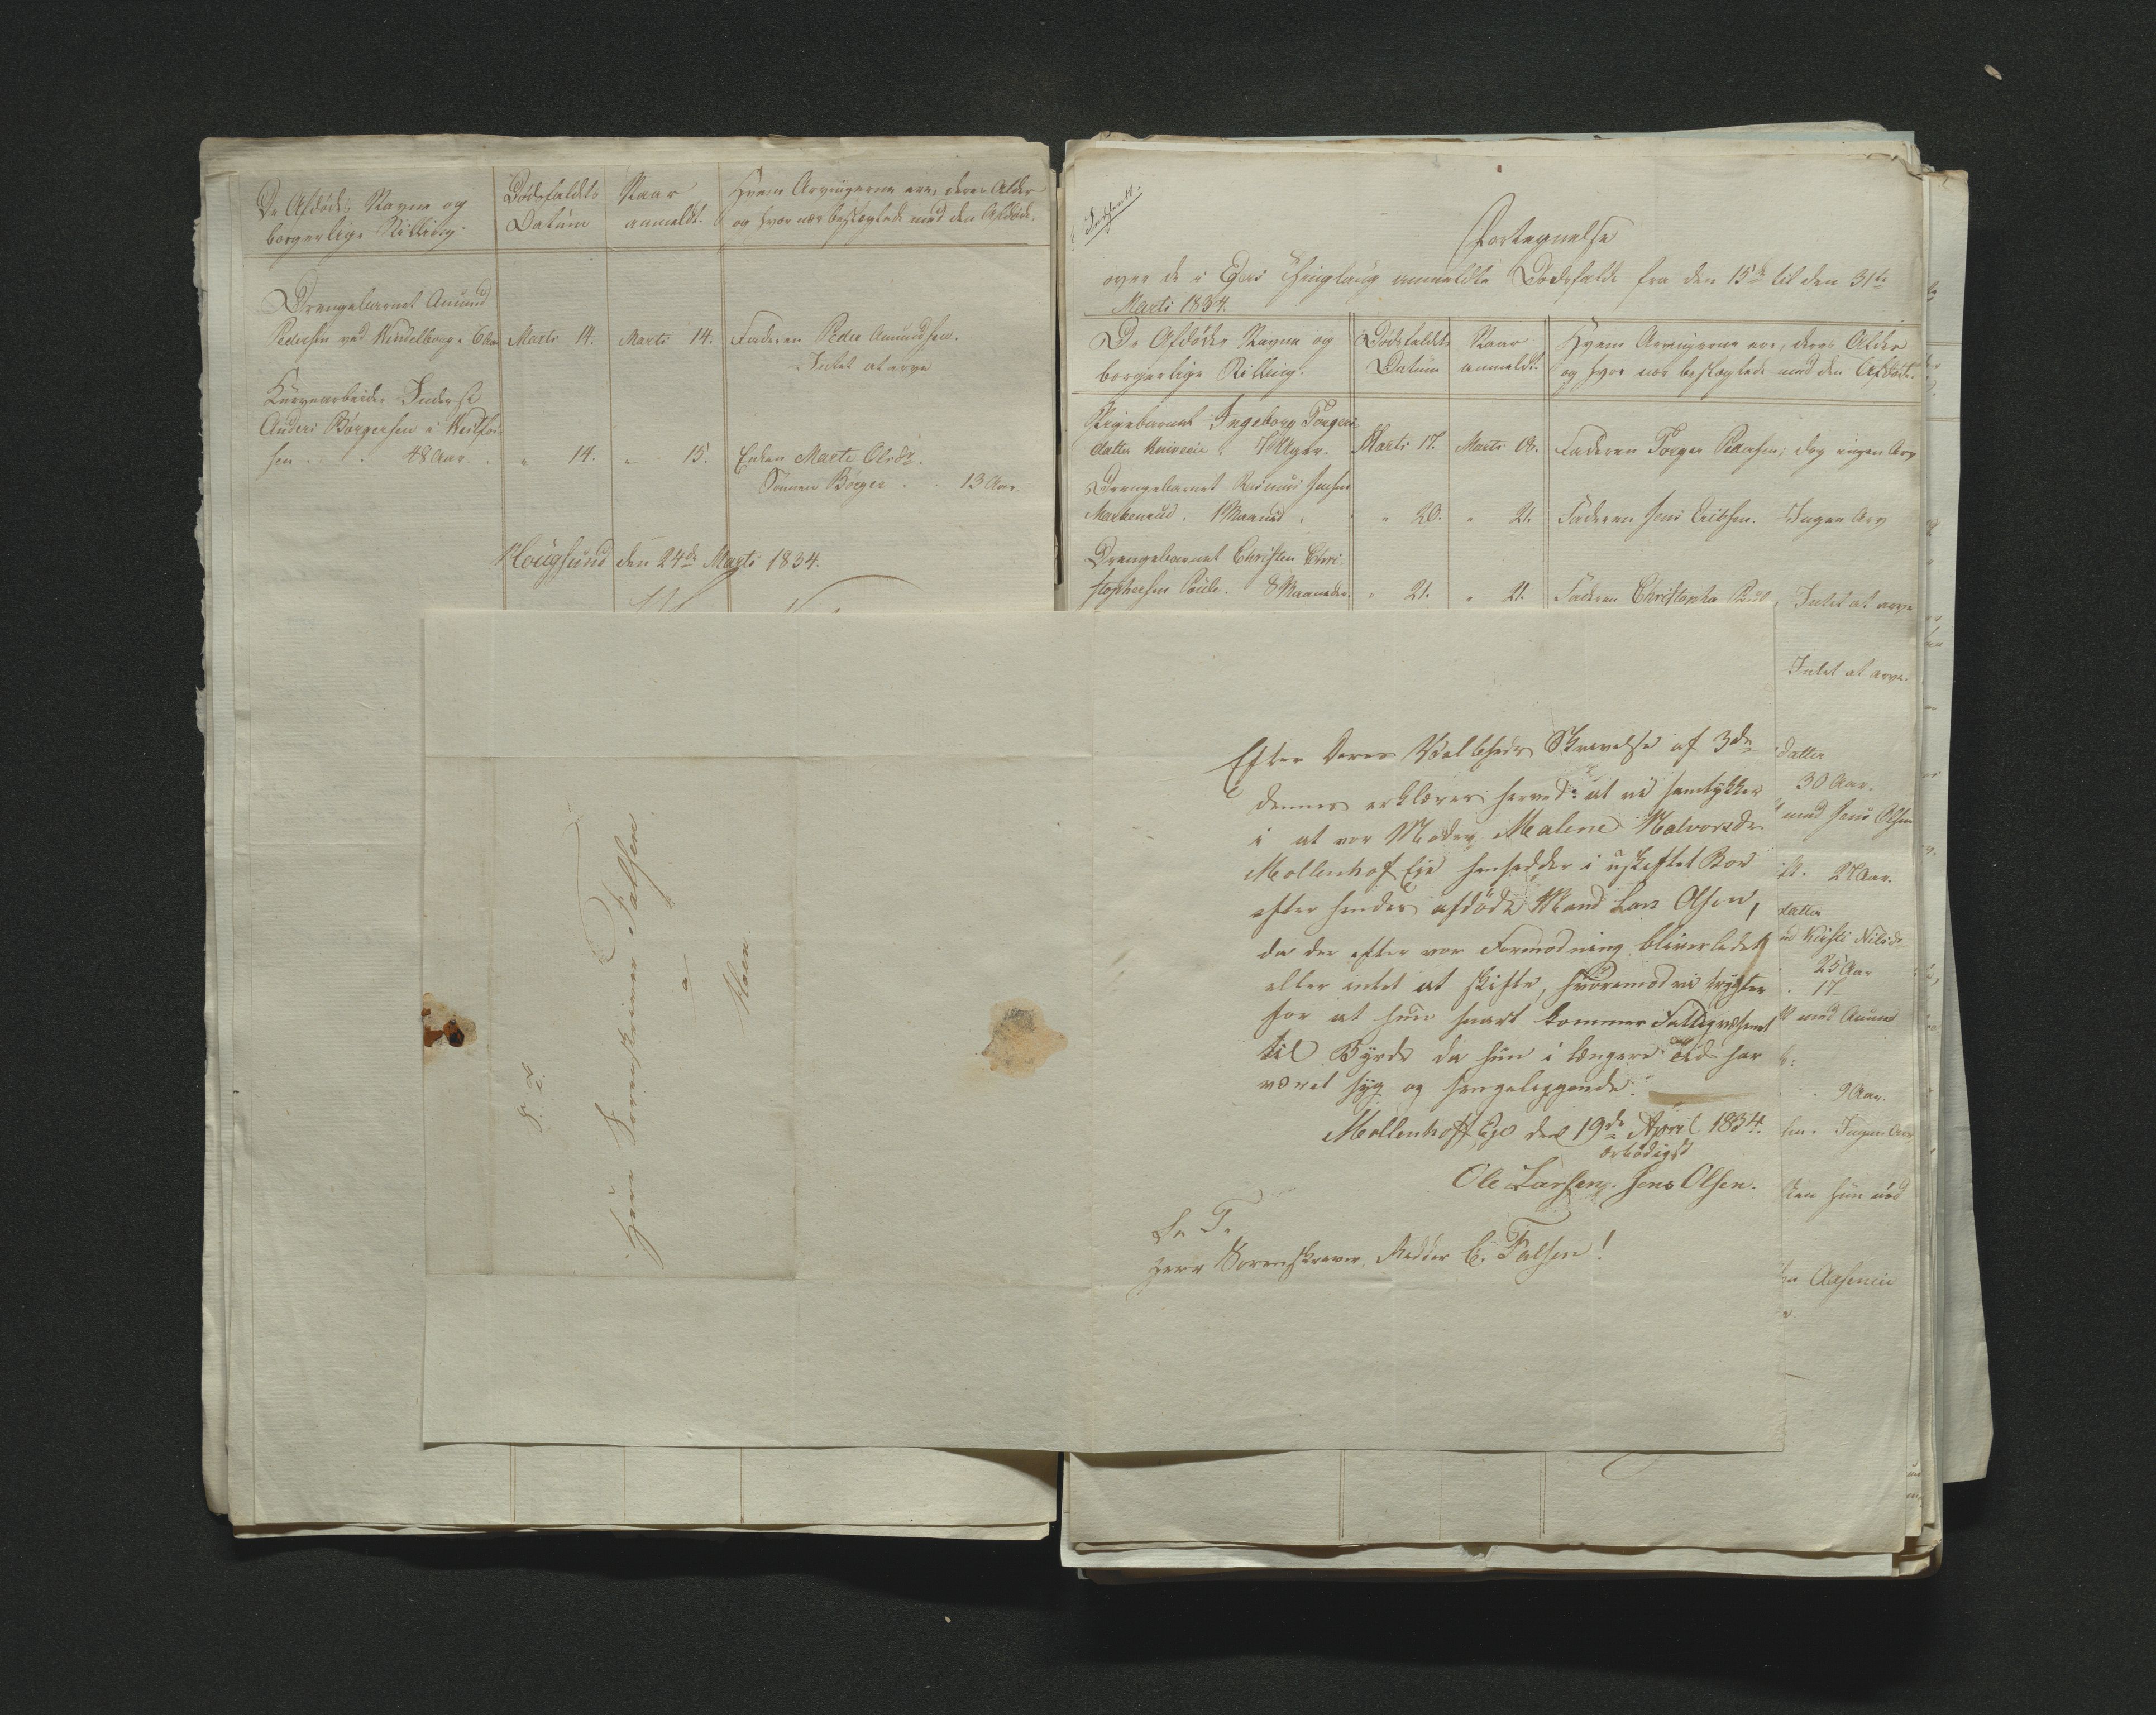 De Afdødes Navne og
borgerlige Stilling.
Dødsfaldets
Datum
Naar
anmeldt.
Hvem Arvingerne ere, deres Alder
og hvor nær beslægtede med den Afdøde.
Drengebarnet Amund
Pedersen ved
Marti 14.
Marti 14.
Faderen Peder Amundsen.
Intet at arve
Inderst
Anders Børgersen i
sen 48 Aar.
" 14.
" 15.
Enken Marte Olsdr.
Sønnen Børger 13 Aar.
Hougsund den 24de Marti 1834.
S. T.
Herr Sorenskriver Falsen
a
Hoen
Indsendt.
Fortegnelse
over de i Eger Thinglaug anmeldte Dødsfald fra den 15de til den 31te
Marti 1834.
De Afdødes Navne og
borgerlige Stilling.
Dødsfaldets
Datum
Naar
anmeldt.
Hvem Arvingerne ere, deres Alder
og hvor nær beslægtede med den Afdøde.
Pigebarnet Ingeborg Torgers
datter 7 Uger.
Marti 17.
Marti 18.
Faderen Torger ; dog ingen Arv
Drengebarnet Rasmus Jensen
1 Maaned
" 20.
" 21.
Faderen Jens Ericksen. Ingen Arv
Drengebarnet Christen Chri-
stophersen 8 Maaneder.
" 21.
" 21.
Faderen Christopher Intet at arve
Intet at arve.
datter
30 Aar.
med Jens Olsen
24 Aar.
datter
Kirsti Nilsdr
25 Aar
17
med
9 Aar.
sen. Ingen Arv
Efter Deres Velbheds Skrivelse af 3de
dennes erklæres herved: at vi samtykker
i at vor Moder Malene Halvorsdr
Mollenhof Eje hensidder i uskiftet Boe
efter hendes afdøde Mand Lars Olsen,
da der efter vor Formodning bliver lidet
eller intet at skifte, hvoremod vi frygter
for at hun snart kommer Fattigvæsenet
til Byrde da hun i længere Tid har
været syg og sengeliggende.
Mollenhoff Eje den 19de April 1834.
ærbødigst
Ole Larsen. Jens Olsen.
S. T.
Herr Sorenskriver, Ridder C. Falsen!